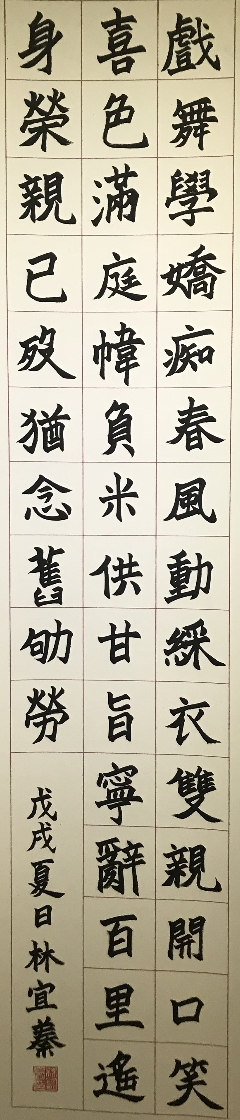 戲舞學嬌痴春風動綵衣雙親開口笑
喜色滿庭幃負米供甘旨寧辭百里遙
身榮親已歿猶念舊劬勞
戊戌夏日林宜蓁